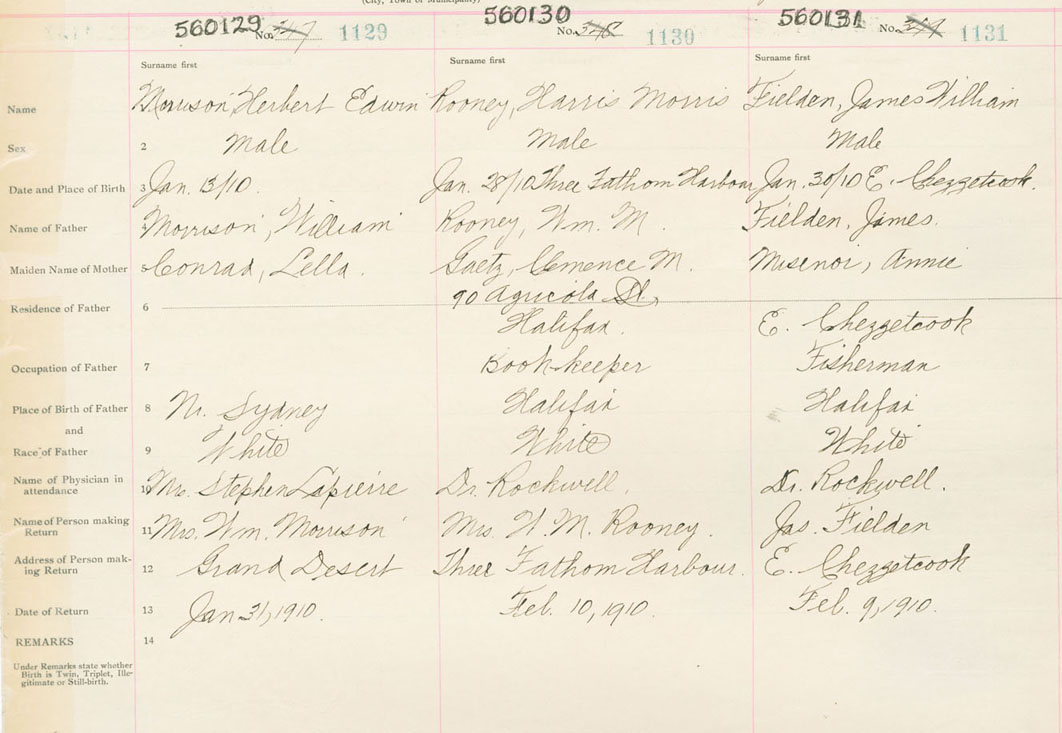 (City, Town or Municipality)
560129 No. 317 1129
560130 No. 318 1130
560131 No. 319 1131
Surname first Surname first Surname first
Name Morrison, Herbert Edwin Rooney, Harris Morris Fielden, James William
Sex 2 Male Male Male
Date and Place of Birth 3 Jan. 13/10. Jan. 28/10 Three Fathom Harbour Jan. 30/10 E. Chezzetcook.
Name of Father Morrison, William Rooney, Wm. M. Fielden, James.
Maiden Name of Mother 5 Conrad, Lella. Gaetz, Clemence M. Misenor, Annie
90 Agricola St.,
Residence of Father 6 Halifax. E. Chezzetcook
Occupation of Father 7 Book-keeper Fisherman
Place of Birth of Father 8 N. Sydney Halifax Halifax
and
Race of Father 9 White White White
Name of Physician in
attendance 10 Mr. Stephen Lapierre Dr. Rockwell. Dr. Rockwell.
Name of Person making
Return 11 Mrs. Wm. Morrison Mrs. W. M. Rooney. Jas. Fielden
Address of Person mak-
ing Return 12 Grand Desert Three Fathom Harbour. E. Chezzetcook
Date of Return 13 Jan 31, 1910. Feb. 10, 1910. Feb. 9, 1910.
REMARKS 14
Under Remarks state whether
Birth is Twin, Triplet, Ille-
gitimate or Still-birth.